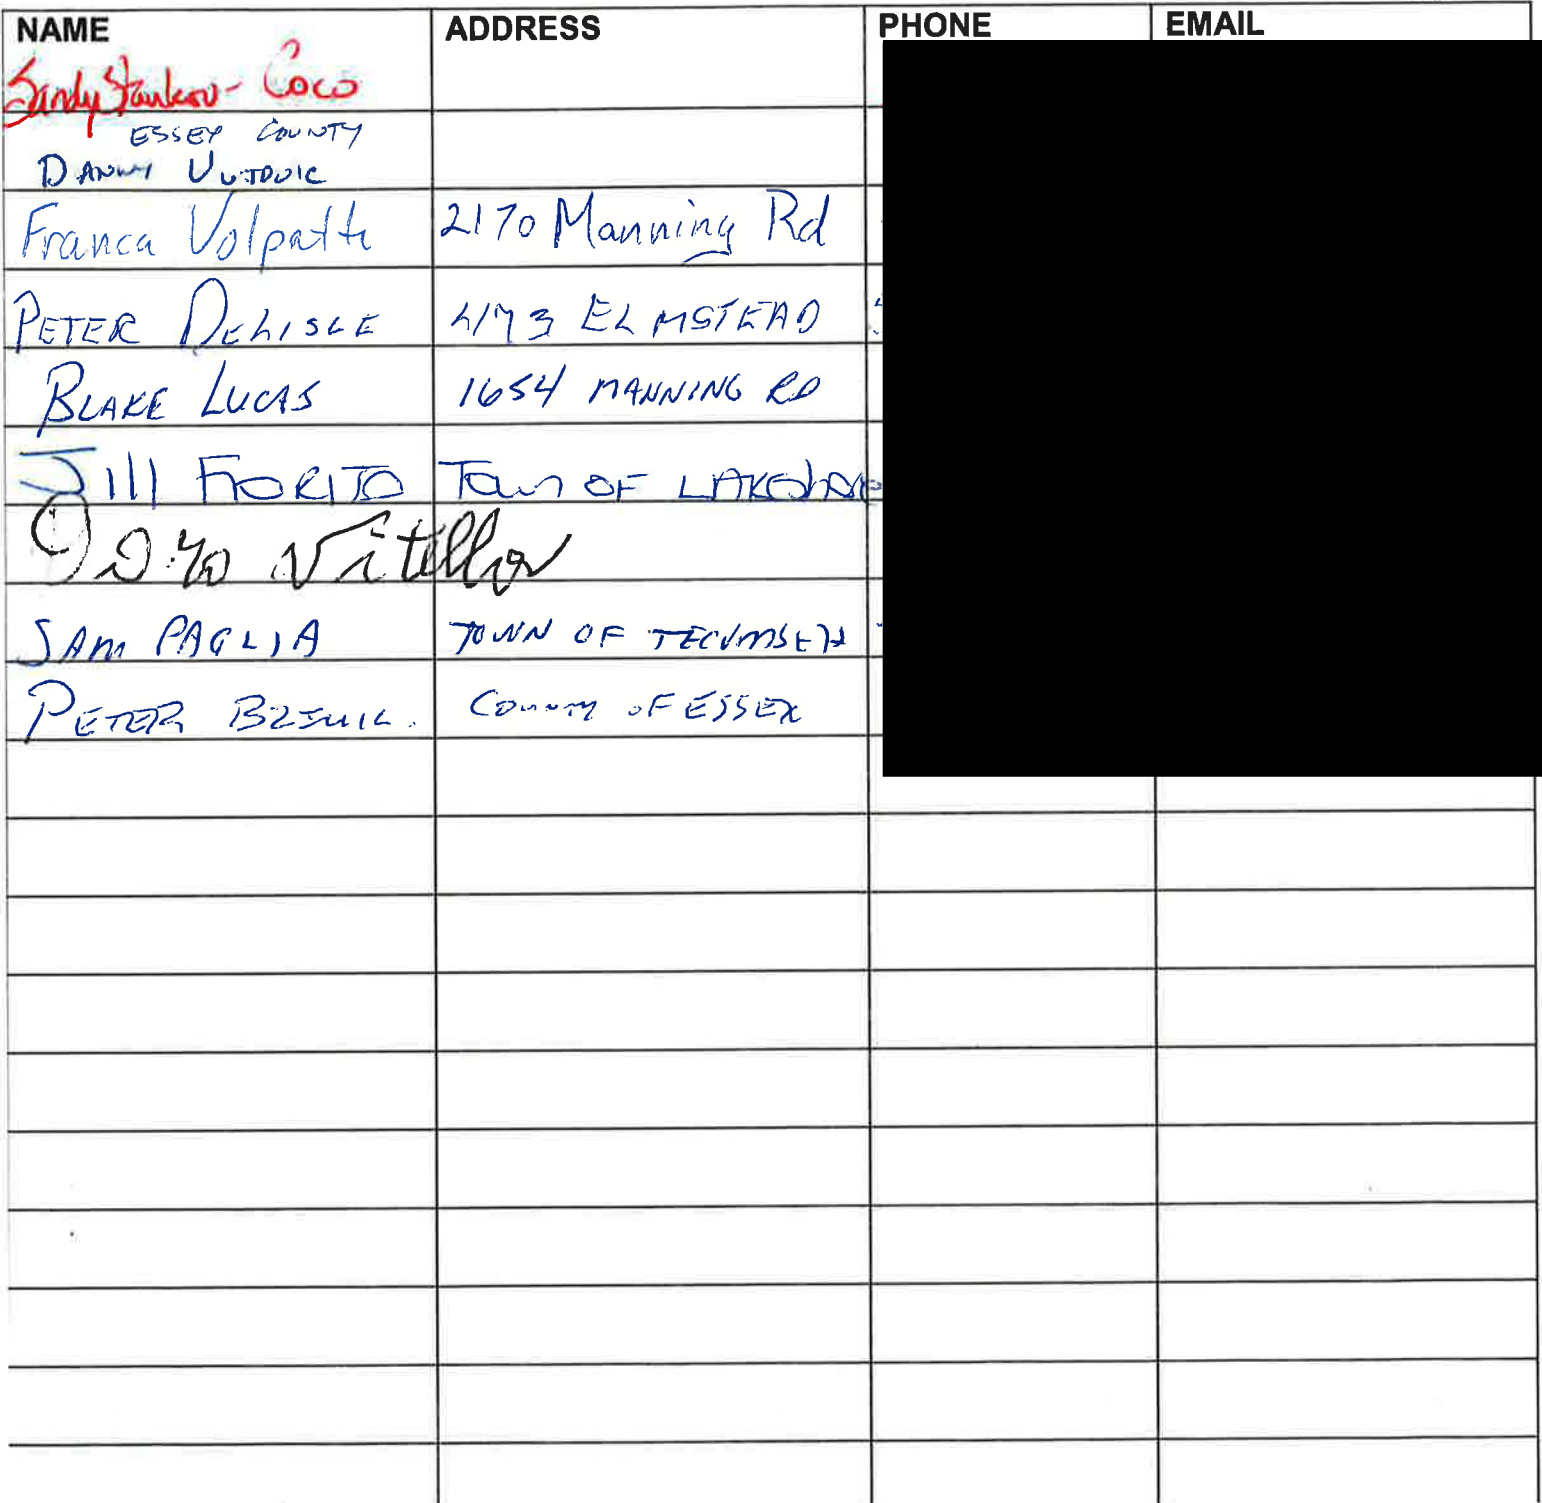 NAME ADDRESS PHONE EMAIL
Sandy Stankov - Coco
ESSEX COUNTY
DANNY VUJOVIC
Franca Volpatti 2170 Manning Rd
PETER DELISLE 473 ELMSTEAD
BLAKE LUCAS 1654 MANNING RD
Jill FIORITO Town OF LAKESHORE
Vitella
SAM PAGLIA TOWN OF TECUMSEH
PETER COUNTY OF ESSEX